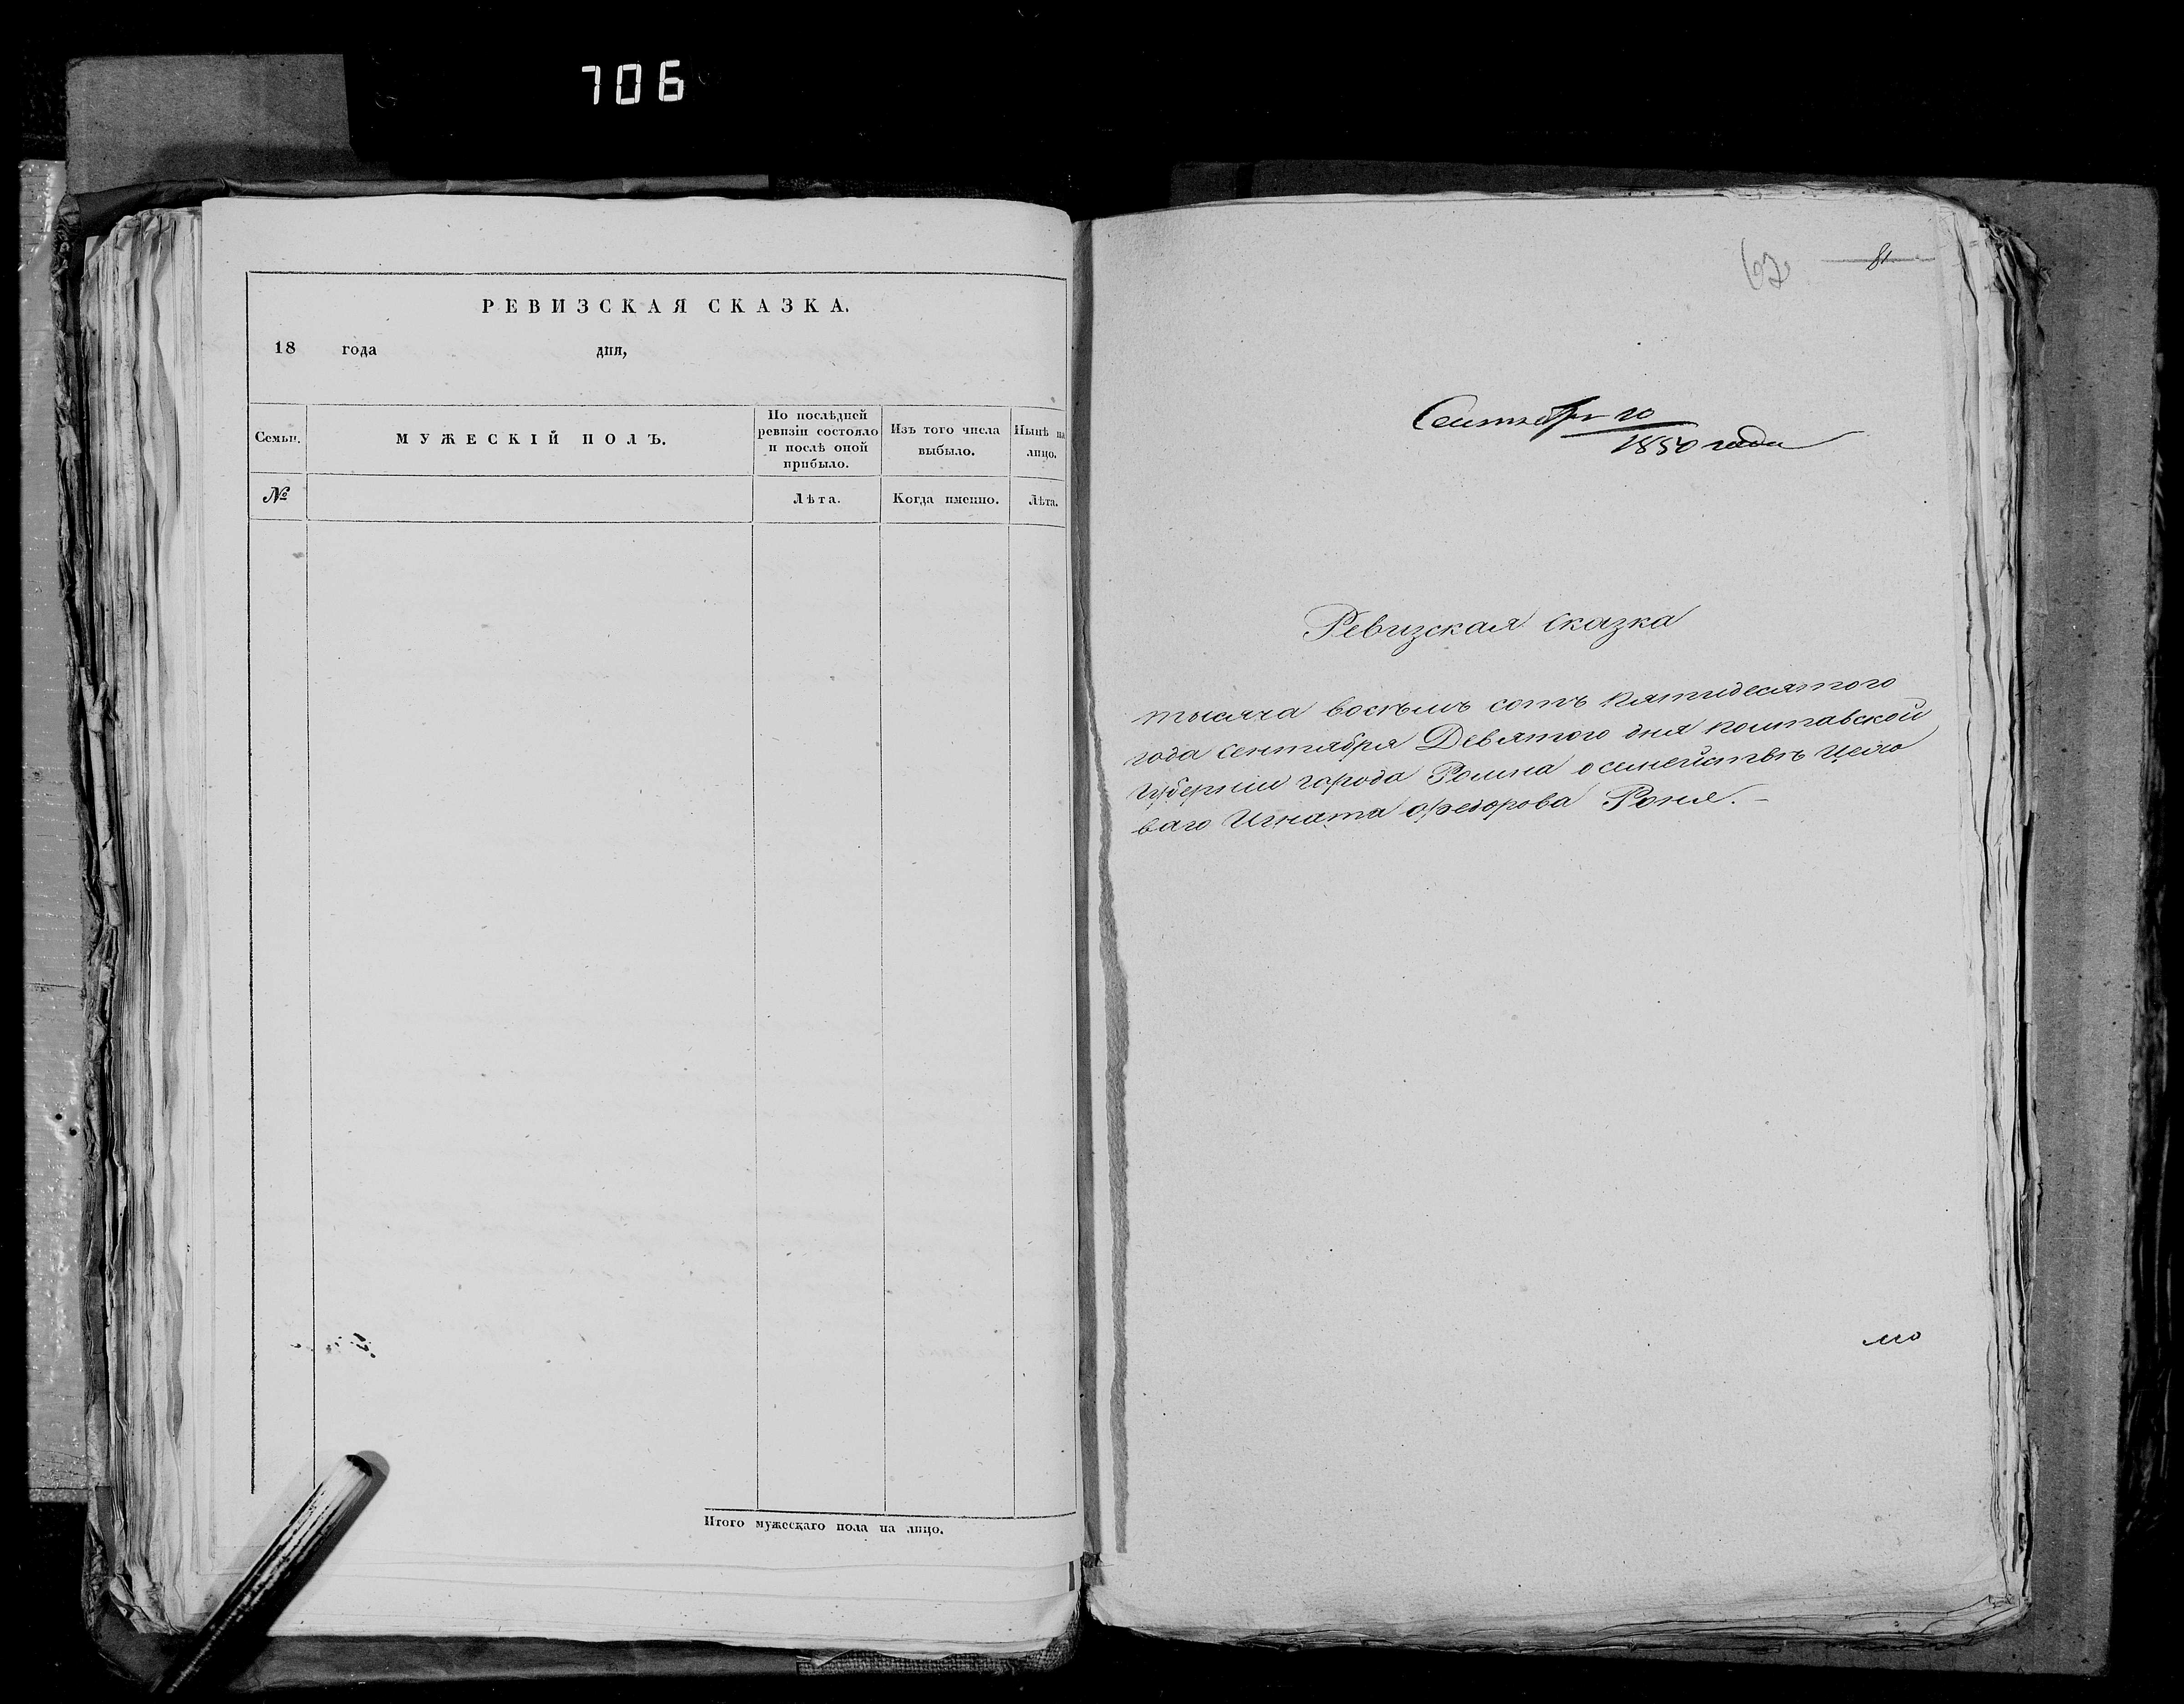 706
РЕВИЗСКАЯ СКАЗКА.
18 года дня,
Семьи.
МУЖЕСКІЙ ПОЛЪ.
По послѣдней
ревизіи состояло
и послѣ оной
прибыло.
Изъ того числа
выбыло.
Нынѣ на
лицо.
№
Лѣта.
Когда именно.
Лѣта.
Итого мужескаго пола на лицо.
81
Сентября 10
1850 года
Ревизская сказка
тысяча восѣмъ сотъ пятидесятого
года сентября Девятого дня полтавской
губерніи города Ромна о семействѣ цехо
ваго Игната Федорова